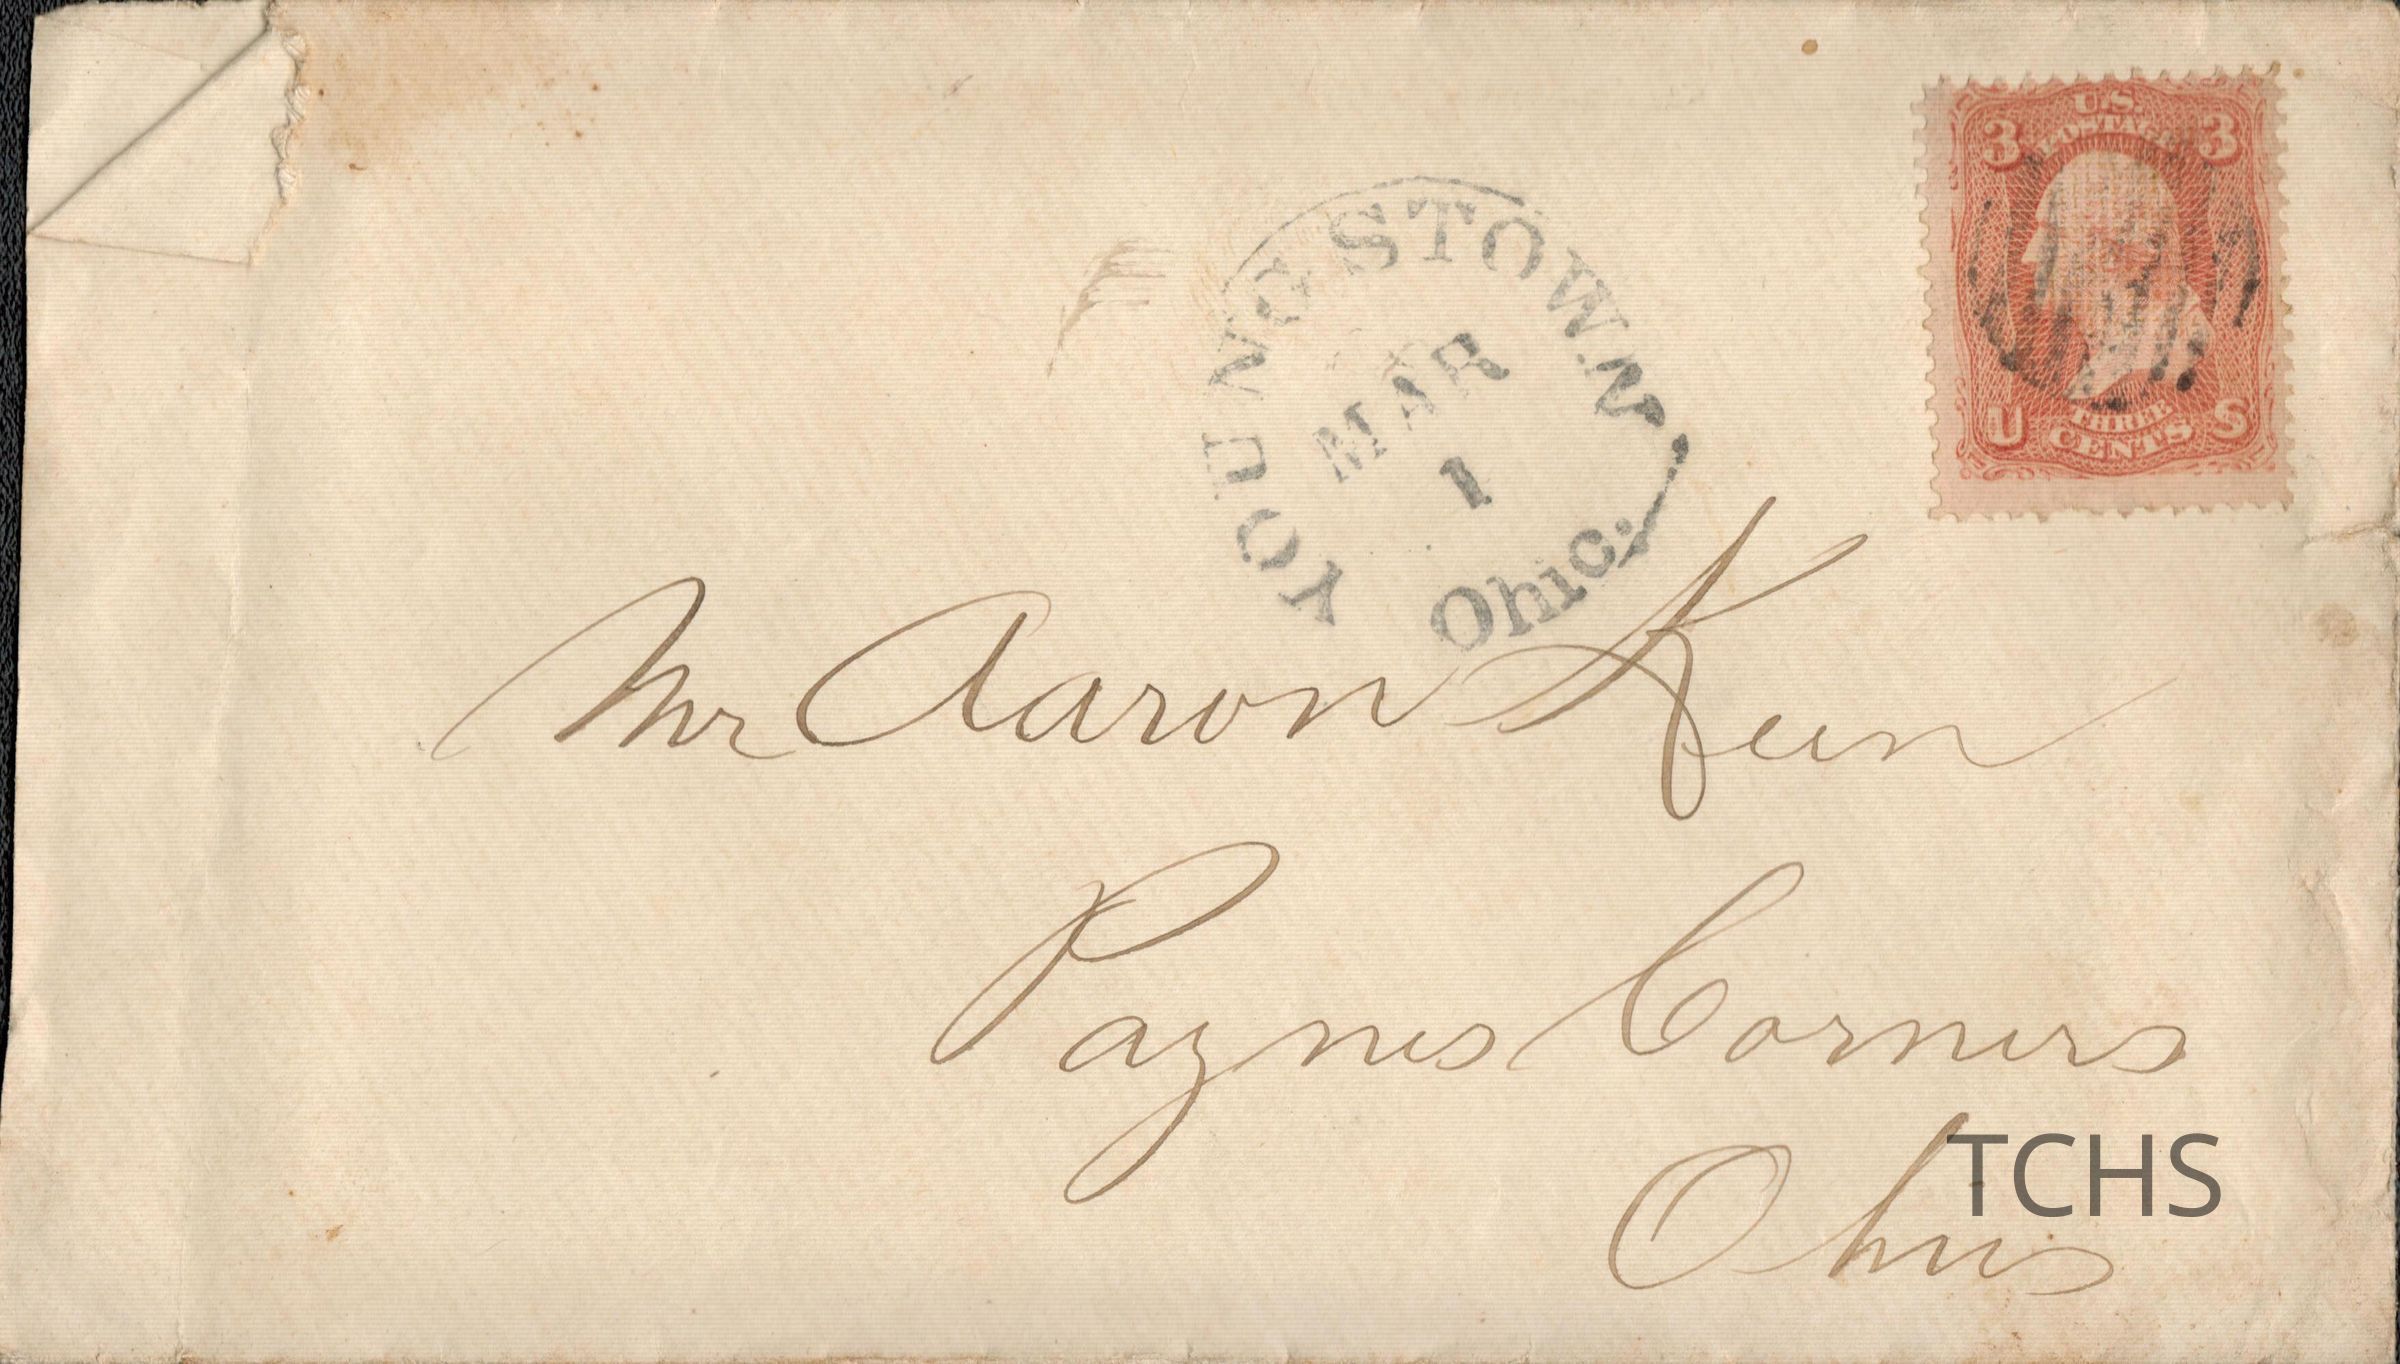 U.S. POSTAGE
3 3
U THREE CENTS S
YOUNGSTOWN
MAR
1
Ohio.
Mr Aaron Keen
Paynes Corners
Ohio
TCHS